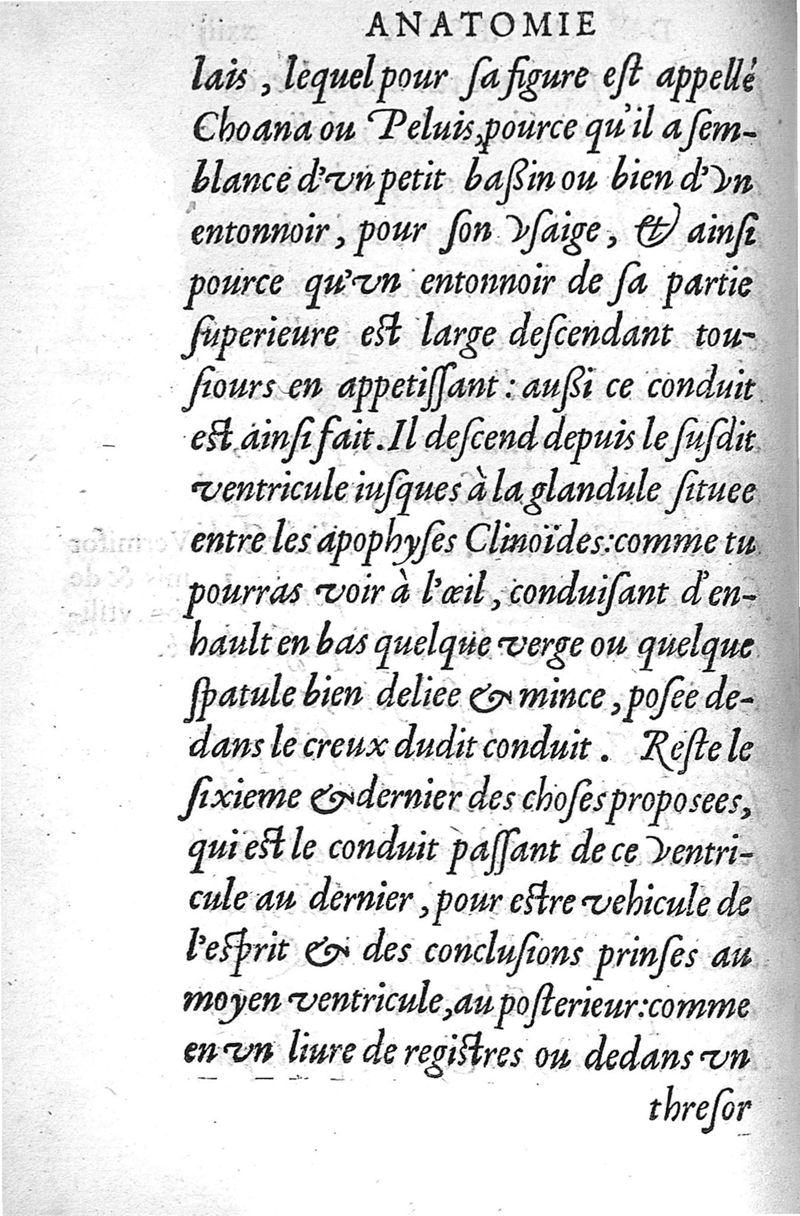 ANATOMIE
lais, lequel pour ſa figure eſt appellé
Choana ou Peluis, pource qu'il a ſem-
blance d'vn petit baßin ou bien d'vn
entonnoir, pour ſon vſaige, & ainſi
pource qu'vn entonnoir de ſa partie
ſuperieure eſt large deſcendant tou-
ſiours en appetiſſant : außi ce conduit
eſt ainſi fait. Il deſcend depuis le ſuſdit
ventricule iuſques à la glandule ſituee
entre les apophyſes Clinoïdes: comme tu
pourras voir à l'œil, conduiſant d'en-
hault en bas quelque verge ou quelque
ſpatule bien deliee & mince, poſee de-
dans le creux dudit conduit. Reſte le
ſixieme & dernier des choſes propoſees,
qui eſt le conduit paſſant de ce ventri-
cule au dernier, pour eſtre vehicule de
l'eſprit & des concluſions prinſes au
moyen ventricule, au poſterieur: comme
en vn liure de regiſtres ou dedans vn
threſor